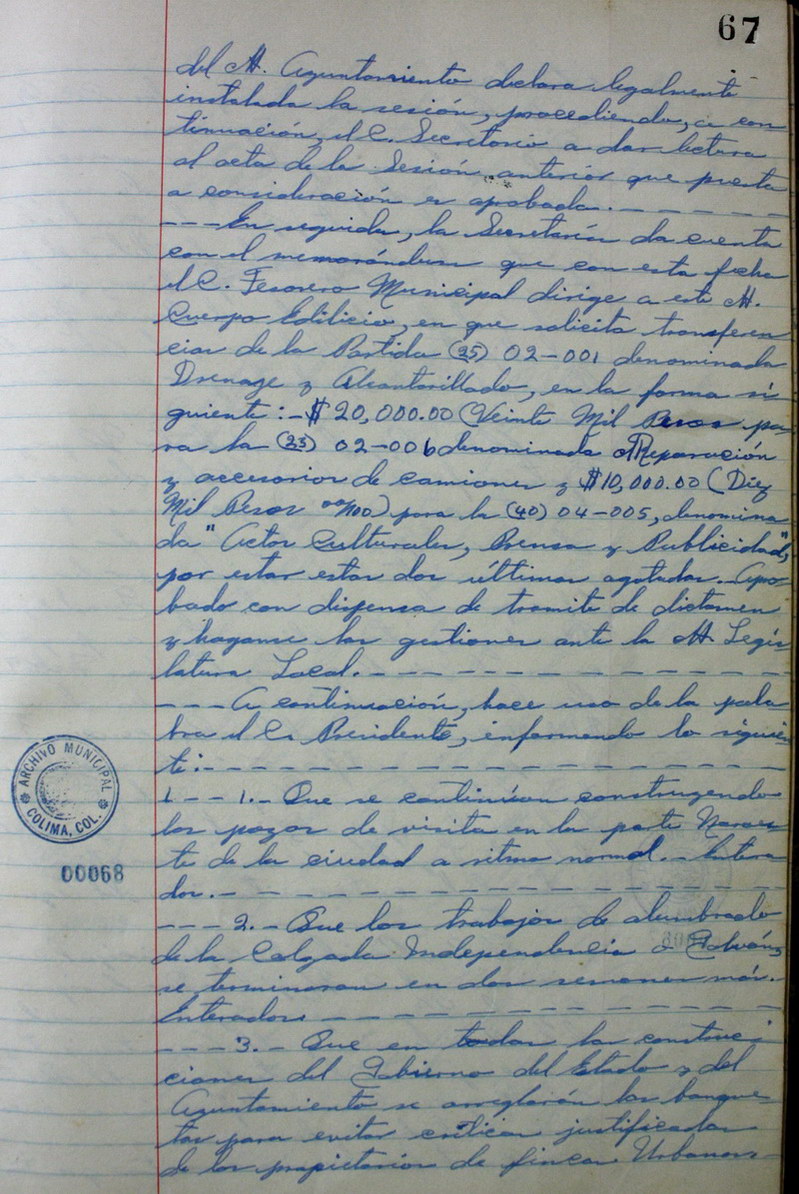 67
del H. Ayuntamiento declara legalmente
instalada la sesión, procediendo, a con
tinuación, el C. Secretario a dar lectura
al acta de la Sesión anterior que puesta
a consideración es aprobada.- — — — —
- - - En seguida, la Secretaría da cuenta
con el memorándum que con esta fecha
el C. Tesorero Municipal dirige a este H.
Cuerpo Edilicio, en que solicita transferen
cias de la Partida (25) 02-001 denominada
Drenage y Alcantarillado, en la forma si
guiente:- $ 20,000.00 (Veinte Mil Pesos pa-
ra la (23) 02-006 denominada Reparación
y accesorios de camiones y $10,000.00 (Diez
Mil Pesos 00/100) para la (40) 04-005, denomina
da "Actos Culturales, Prensa y Publicidad",
por estar estas dos últimas agotadas.- Apro
bado con dispensa de tramite de dictamen
y haganse las gestiones ante la H. Legis
latura Local.- — — — — — — — —
- - - A continuación, hace uso de la pala
bra el C. Presidente, informando lo siguien
te:- — — — — — — — — — — —
1 - - 1.- Que se continúan construyendo
los pozos de visita en la parte Noroes
te de la ciudad a ritmo normal.- Entera
dos.- — — — — — — — — — — —
- - - 2.- Que los trabajos de alumbrado
de la Calzada Independencia o Galván,
se terminaran en dos semanas más.-
Enterados — — — — — — — — —
- - - 3.- Que en todas las construc-
ciones del Gobierno del Estado y del
Ayuntamiento se arreglarán las banque-
tas para evitar criticas justificadas
de los propietarios de fincas Urbanas-
ARCHIVO MUNICIPAL
COLIMA, COL.
00068